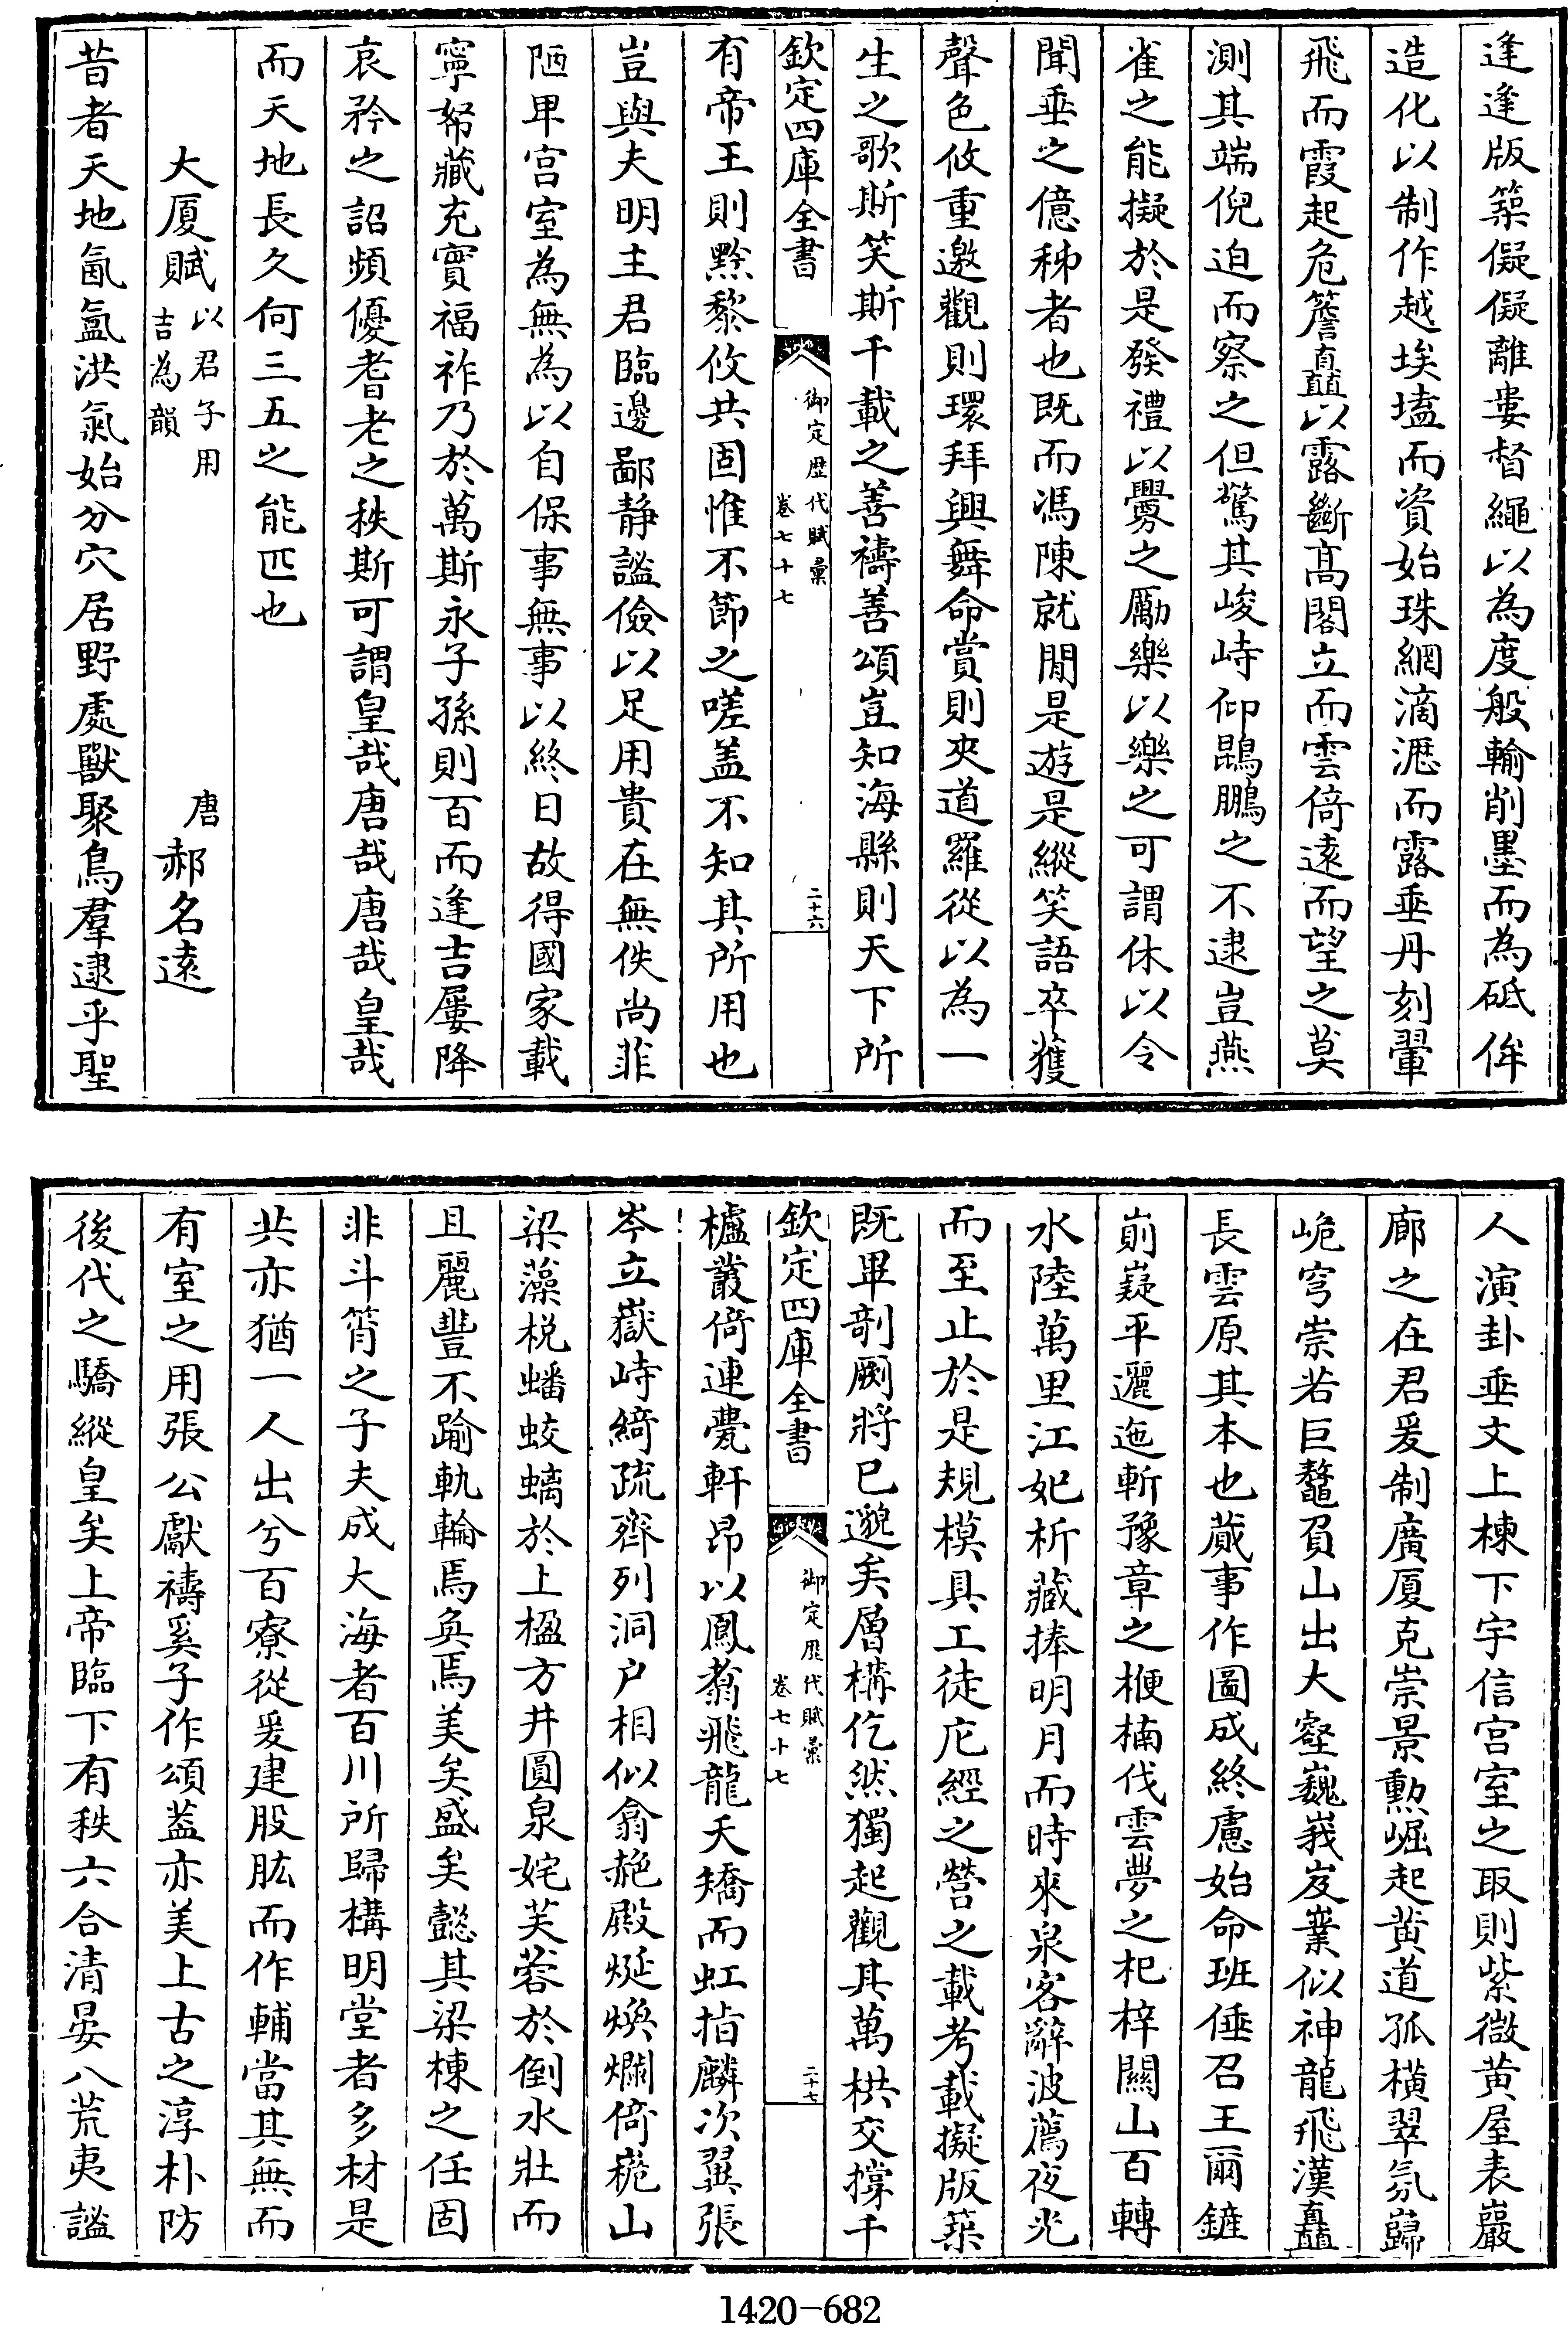 逢逢版築儗儗離婁督繩以為度般輸削墨而為砥侔
造化以制作越埃壒而資始珠網滴瀝而露垂丹刻翬
飛而霞起危簷矗以露斷髙閣立而雲倚逺而望之莫
測其端倪迫而察之但驚其峻峙仰鵾鵬之不逮豈燕
雀之能擬於是發禮以釁之勵樂以樂之可謂休以令
聞垂之億秭者也既而馮陳就閒是遊是縱笑語卒獲
聲色攸重邀觀則環拜興舞命賞則夾道羅從以為一
生之歌斯笑斯千載之善禱善頌豈知海縣則天下所
欽定四庫全書
御定歴代賦彙
卷七十七
二十六
有帝王則黙黎攸共固惟不節之嗟盖不知其所用也
豈與夫明主君臨邊鄙静謐儉以足用貴在無佚尚菲
陋卑宫室為無為以自保事無事以終日故得國家載
寧帑藏充實福祚乃於萬斯永子孫則百而逢吉屢降
哀矜之詔頻優耆老之秩斯可謂皇哉唐哉唐哉皇哉
而天地長久何三五之能匹也
大厦賦以君子用吉為韻
唐
郝名逺
昔者天地氤氳洪氣始分穴居野處獸聚鳥羣逮乎聖
人演卦垂文上棟下宇信宫室之取則紫微黄屋表巖
廊之在君爰制廣厦克崇景勲崛起黄道孤横翠氛巋
峗穹崇若巨鼇負山出大壑巍峩岌嶪似神龍飛漢矗
長雲原其本也蕆事作圖成終慮始命班倕召王爾鏟
崱嶷平邐迤斬豫章之楩楠伐雲夢之杞梓闗山百轉
水陸萬里江妃析藏捧明月而時來泉客辭波薦夜光
而至止於是規模具工徒庀經之營之載考載擬版築
既畢剞劂將已邈矣層構仡然獨起觀其萬栱交撐千
欽定四庫全書
御定歴代賦彙
卷七十七
二十七
櫨叢倚連甍軒昂以鳳翥飛龍夭矯而虹指麟次翼張
岑立嶽峙綺疏齊列洞户相似翕赩殿烻煥爛倚㠑山
梁藻梲蟠蛟螭於上楹方井圓泉姹芙蓉於倒水壯而
且麗豐不踰軌輪焉奐焉美矣盛矣懿其梁棟之任固
非斗筲之子夫成大海者百川所歸構明堂者多材是
共亦猶一人出兮百寮從爰建股肱而作輔當其無而
有室之用張公獻禱奚子作頌葢亦美上古之淳朴防
後代之驕縱皇矣上帝臨下有秩六合清晏八荒夷謐
1420-682